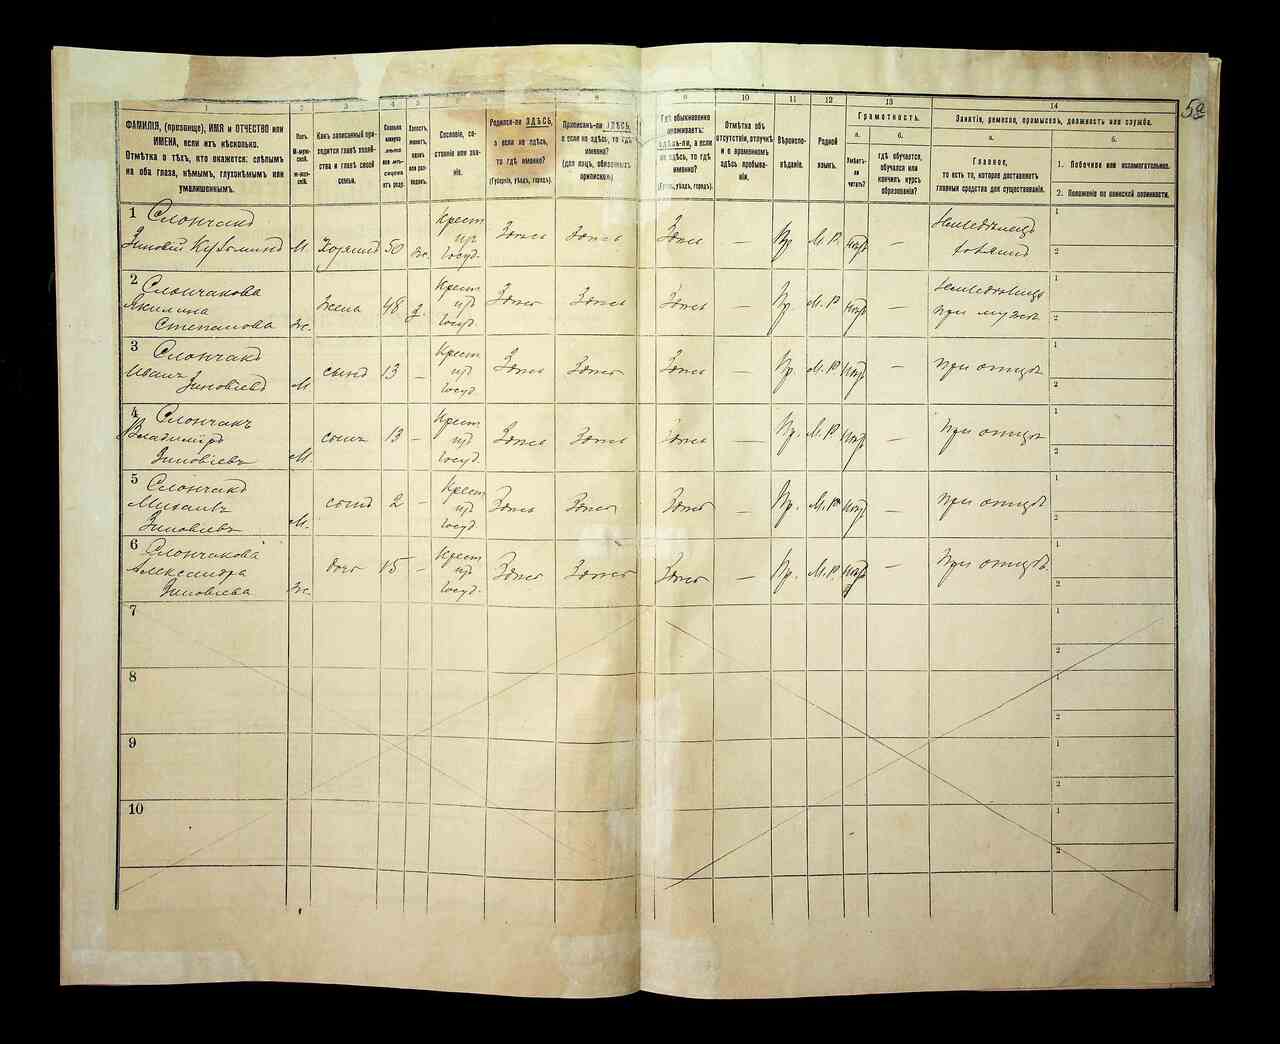 5а
1 2 3 4 5 8 9 10 11 12 13 14
ФАМИЛІЯ, (прозвище), ИМЯ и ОТЧЕСТВО или
ИМЕНА, если ихъ нѣсколько.
Отмѣтка о тѣхъ, кто окажется: слѣпымъ
на оба глаза, нѣмымъ, глухонѣмымъ или
умалишеннымъ.
Полъ.
М-муж-
ской.
Ж-жен-
скій.
Какъ записанный при-
ходится главѣ хозяй-
ства и главѣ своей
семьи.
Сколько
минуло
лѣтъ
или мѣ-
сяцевъ
отъ роду.
Холостъ,
женатъ,
вдовъ
или раз-
веденъ.
Сословіе, со-
стояніе или зва-
ніе.
Родился-ли ЗДѢСЬ,
а если не здѣсь,
то гдѣ именно?
(Губернія, уѣздъ, городъ).
Приписанъ-ли ЗДѢСЬ,
а если не здѣсь, то гдѣ
именно?
(для лицъ, обязанныхъ
припискою)
Гдѣ обыкновенно
проживаетъ:
здѣсь-ли, а если
не здѣсь, то гдѣ
именно?
(Губерн., уѣздъ, городъ).
Отмѣтка объ
отсутствіи, отлучкѣ
и о временномъ
здѣсь пребыва-
ніи.
Вѣроиспо-
вѣданіе.
Родной
языкъ.
Грамотность.
а. б.
Умѣетъ-
ли
читать?
гдѣ обучается,
обучался или
кончилъ курсъ
образованія?
Занятія, ремесло, промыселъ, должность или служба.
а. б.
Главное,
то есть то, которое доставляетъ
главныя средства для существованія.
1. Побочное или вспомогательное.
2. Положеніе по воинской повинности.
1 Слончакъ
Зиновій Кузьминъ М. Хозяинъ 50 Ж. Крест из Госуд. Здесь Здесь Здесь — Пр М.Р. — Земледелецъ
1
2
2 Слончакова
Акилина
Степанова Ж. Жена 48 З. Крест из Госуд. Здесь Здесь Здесь — Пр. М.Р — при мужѣ
1
2
3 Слончакъ
Иванъ
Зиновіевъ М сынъ 13 — Крест из Госуд. Здесь Здесь Здесь — Пр. М.Р — при отцѣ
1
2
4 Слончакъ
Владиміръ
Зиновіевъ М. сынъ 13 — Крест из Госуд. Здесь Здесь Здесь — Пр. М.Р. — при отцѣ
1
2
5 Слончакъ
Михаилъ
Зиновіевъ М. сынъ 2 — Крест из Госуд. Здесь Здесь Здесь — Пр. М.Р — при отцѣ
1
2
6 Слончакова
Александра
Зиновіева Ж. дочь 15 — Крест из Госуд. Здесь Здесь Здесь — Пр. М.Р. — При отцѣ
1
2
7
1
2
8
1
2
9
1
2
10
1
2